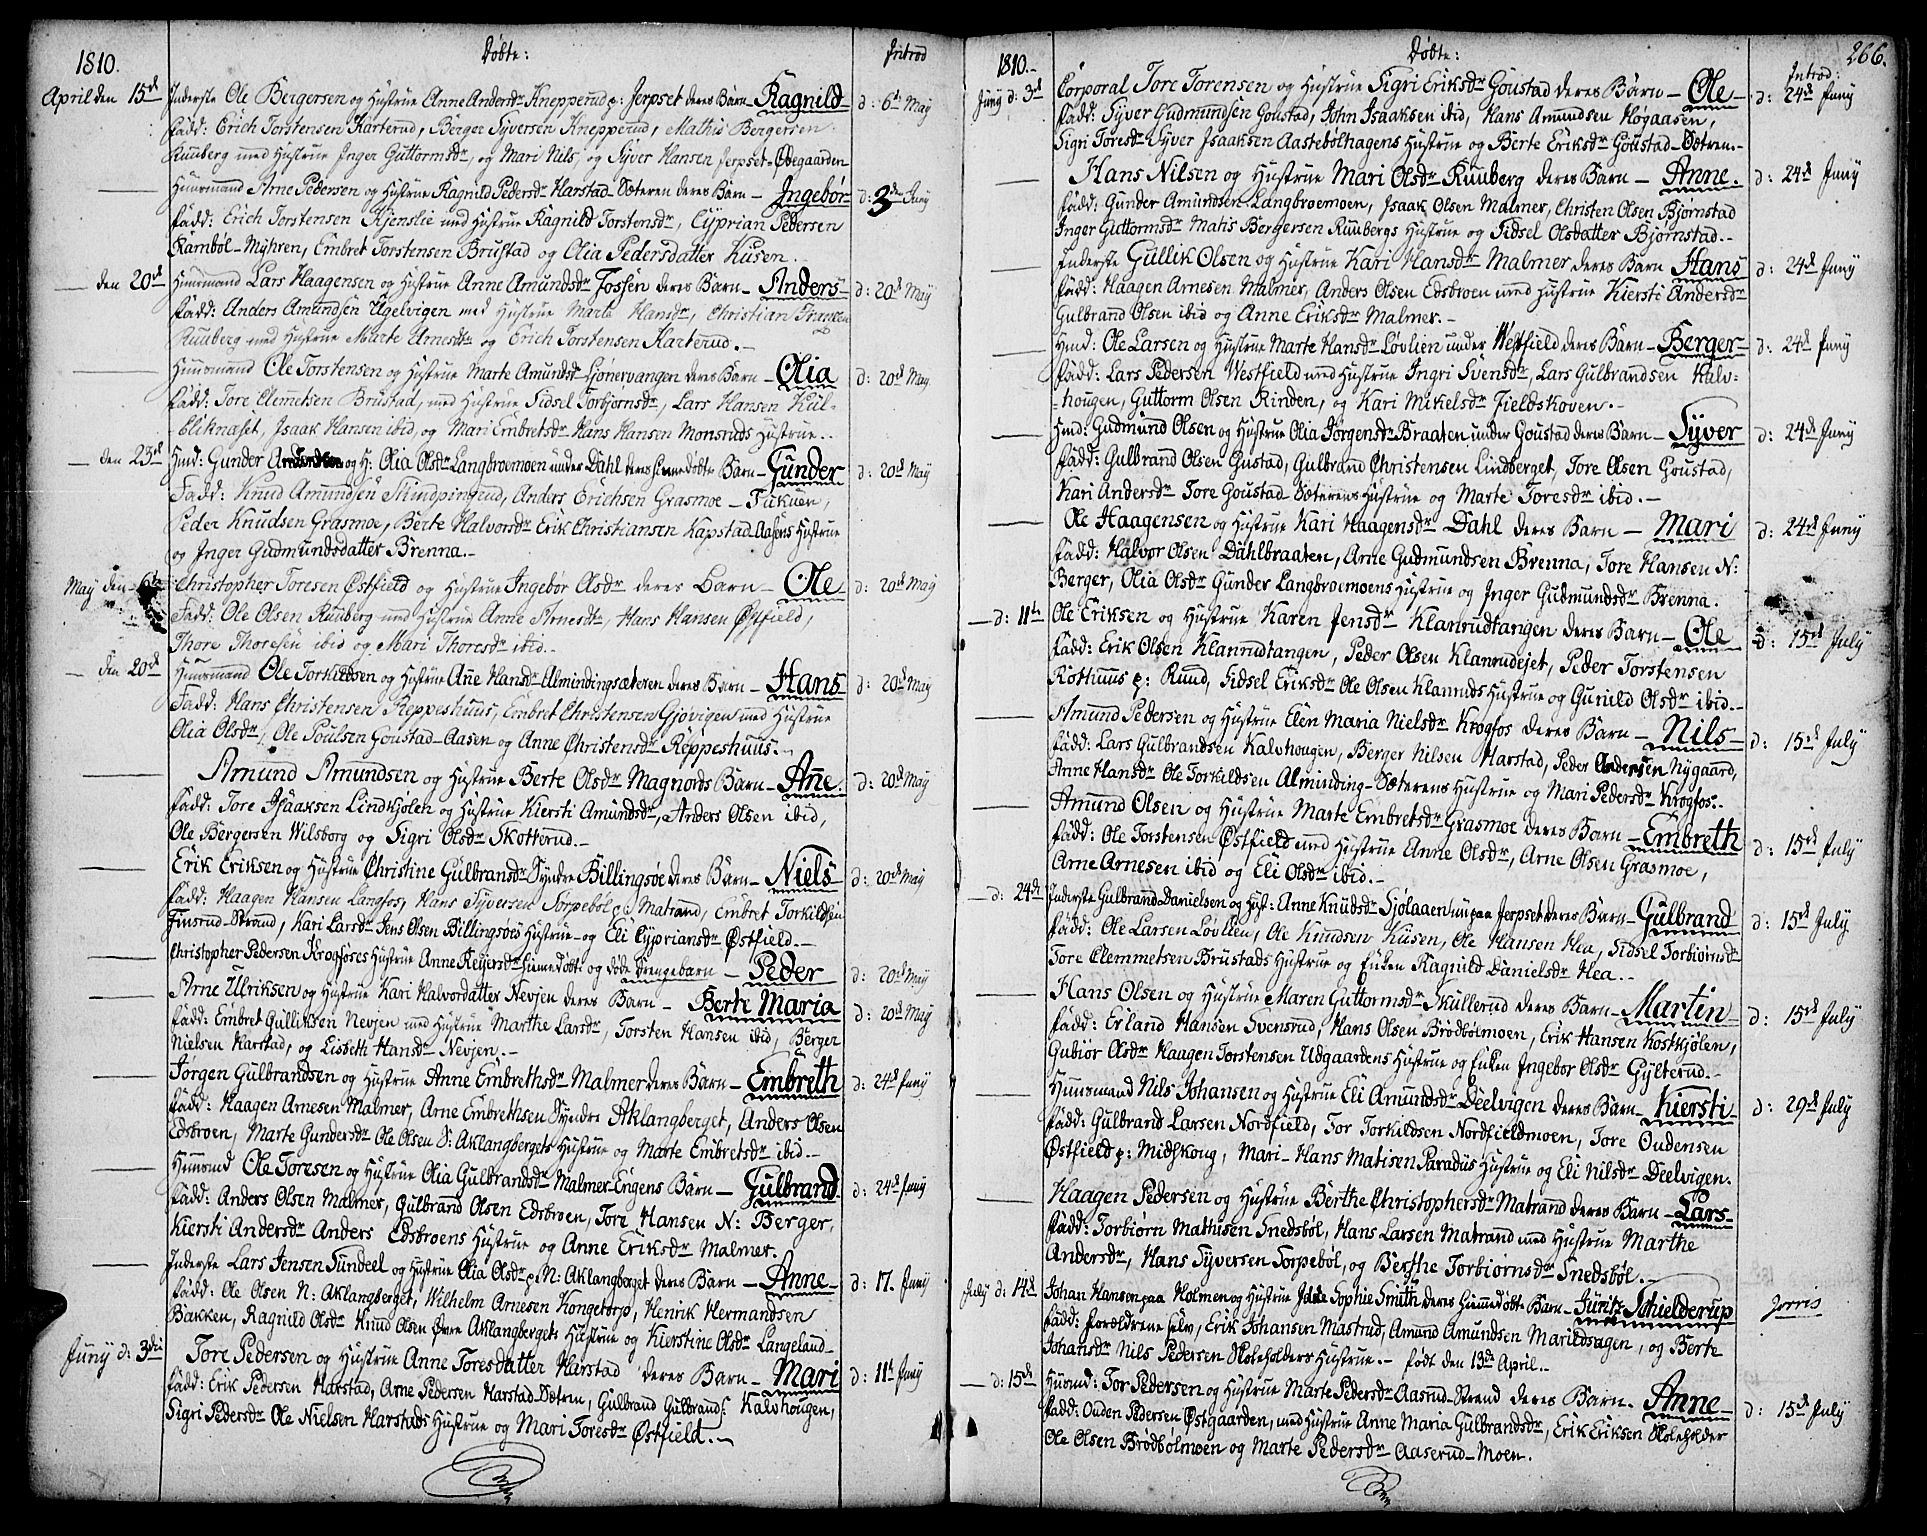 1810.
Døbte:
Introd
April den 15de Inderste Ole Bergersen og Hustrue Anne Andersdr Knepperud p: Jerpset deres Barn – Ragnild d: 6te May
Fadd: Erich Torstensen Karterud, Berger Syversen Knepperud, Mathis Bergersen
Ruuberg med Hustrue Inger Guttormsdr, og Mari Nils, og Syver Hansen Jerpset-Ødegaarden
Huusmand Arne Pedersen og Hustrue Ragnild Pedersdr Harstad-Sæteren deres Barn – Ingebor d: 3die Juny
Fadd: Erich Torstensen Kjenslie med Hustrue Ragnild Torstensdr, Cyprian Pedersen
Rambøl-Myhren, Embret Torstensen Brustad og Olia Pedersdatter Kusen.
– den 20de Huusmand Lars Haagensen og Hustrue Anne Amundsdr Fossen deres Barn – Anders d: 20de May
Fadd: Anders Amundsen Ugelvigen med Hustrue Marte Hansdr, Christian Fransen
Ruuberg med Hustrue Marte Arnesdtr og Erich Torstensen Karterud. –
Huusmand Ole Torstensen og Hustrue Marte Amundsdr Sjønervangen deres Barn – Olia d: 20de May
Fadd: Tore Clemetsen Brustad, med Hustrue Sidsel Torbjørnsdr, Lars Hansen Kul-
bliknæset, Isaak Hansen ibid, og Mari Embretsdr Hans Hansen Monsruds Hustrue.
– den 23de Hmd: Gunder Amundsen og H: Olia Olsdr Langbroemoen under Dahl deres hiemedøbte Barn – Gunder d: 20de May
Fadd: Knud Amundsen Mindpingrud, Anders Erichsen Grasmoe-Tukuen,
Peder Knudsen Grasmoe, Berte Halvorsdr Erik Christiansen Kapstad-Aasens Hustrue
og Inger Gudmundsdatter Brenna. –
May den 6te Christopher Toresen Østfield og Hustrue Ingebør Olsdr deres Barn – Ole d: 20de May
Fadd: Ole Olsen Ruuberg med Hustrue Anne Arnesdtr, Hans Hansen Østfield,
Thore Thoresen ibid og Mari Thoresdr ibid. –
– den 20de Huusmand Ole Torkildsen og Hustrue Anne Hansdr Almindingsæteren deres Barn – Hans d: 20de May
Fadd: Hans Christensen Reppeshuus, Embret Christensen Gjøvigen med Hustrue
Olia Olsdr, Ole Poulsen Goustad-Aasen og Anne Christensdr Reppeshuus. –
Amund Amundsen og Hustrue Berte Olsdr Magnords Barn – Anne. d: 20de May
Fadd: Tore Isaaksen Lindkjølen og Hustrue Kiersti Amundsdr, Anders Olsen ibid,
Ole Bergersen Wilsborg og Sigri Olsdr Skotterud. –
Erik Eriksen og Hustrue Christine Gulbrandsdr Syndre Billingsøe deres Barn – Niels d: 20de May
Fadd: Haagen Hansen Langfos, Hans Syversen Torpebøl p: Matrand, Embret Torkildsen
Finsrud-Strand, Kari Larsdr Jens Olsen Billingsøes Hustrue og Eli Cypriansdr Østfield. –
Christopher Pedersen Krogfoses Hustrue Anne Reyersdr hiemedøbt og døde Drengebarn – Peder d: 20de May
Arne Ulriksen og Hustrue Kari Halvordatter Nevjen deres Barn – Berte Maria d: 20de May
Fadd: Embret Gulliksen Nevjen med Hustrue Marthe Larsdr, Torsten Hansen ibid, Berger
Nielsen Harstad, og Lisbeth Hansdr Nevjen. –
Jørgen Gulbrandsen og Hustrue Anne Embrethsdr Malmer deres Barn – Embreth d: 24de Juny
Fadd: Haagen Arnesen Malmer, Arne Embrethsen Syndre Aklangberget, Anders Olsen
Edsbroen, Marte Gundersdr Ole Olsen S: Aklangbergets Hustrue og Marte Embretsdr ibid. –
Huusmd Ole Toresen og Hustrue Olia Gulbrandsdr Malmer-Engens Barn – Gulbrand d: 24de Juny
Fadd: Anders Olsen Malmer, Gulbrand Olsen Edsbroen, Tore Hansen N: Berger,
Kiersti Andersdr Anders Edsbroens Hustrue og Anne Eriksdr Malmer.
Inderste Lars Jensen Sundeel og Hustrue Olia Olsdr p: N: Aklangberget deres Barn – Anne – d: 17. Juny
Fadd: Ole Olsen N: Aklangberget, Wilhelm Arnesen Kongetorp, Henrik Hermandsen
Bakken, Ragnild Olsdr Knud Olsen Øvre Aklangbergets Hustrue og Kierstine Olsdr Langeland –
Juny d: 3die Tore Pedersen og Hustrue Anne Toresdatter Harstad deres Barn – Mari d: 11te Juny
Fadd: Erik Pedersen Harstad, Arne Pedersen Harstad-Sætren, Gulbrand Gulbrands: Kalvhougen,
Sigri Pedersdr Ole Nielsen Harstads Hustrue og Mari Toresdr Østfield. –
1810. –
Døbte:
Introd:
266.
Juny d: 3de Corporal Tore Torensen og Hustrue Sigri Eriksdr Goustad deres Barn – Ole – d: 24de Juny
Fadd: Syver Gudmundsen Goustad, John Isaaksen ibid, Hans Amundsen Høgaasen,
Sigri Toresdr Syver Isaaksen Aastebølhagens Hustrue og Berte Eriksdr Goustad-Sætren. –
Hans Nilsen og Hustrue Mari Olsdr Ruuberg deres Barn – Anne. d: 24de Juny
Fadd: Gunder Amundsen Langbroemoen, Isaak Olsen Malmer, Christen Olsen Bjørnstad
Inger Guttormsdr Matis Bergersen Ruubergs Hustrue og Sidsel Olsdatter Bjørnstad. –
Inderste Gullik Olsen og Hustrue Kari Hansdr Malmer deres Barn Hans d: 24de Juny
Fadd: Haagen Arnesen Malmer, Anders Olsen Edsbroen med Hustrue Kiersti Andersdr
Gulbrand Olsen ibid og Anne Eriksdr Malmer. –
Hmd: Ole Larsen og Hustrue Marte Hansdr Løvlien under Westfield deres Barn – Berger d: 24de Juny
Fadd: Lars Pedersen Westfield med Hustrue Ingri Svensdr, Lars Gulbrandsen Kalv-
hougen, Guttorm Olsen Rinden, og Kari Mikelsdr Fieldskoven. –
Hmd: Gudmund Olsen og Hustrue Olia Jørgensdr Braaten under Goustad deres Barn – Syver d: 24de Juny
Fadd: Gulbrand Olsen Gustad, Gulbrand Christensen Lindberget, Tore Olsen Goustad,
Kari Andersdr Tore Goustad-Sæterens Hustrue og Marte Toresdr ibid. –
Ole Haagensen og Hustrue Kari Haagensdr Dahl deres Barn – Mari d: 24de Juny
Fadd: Halvor Olsen Dahlbraaten, Arne Gudmundsen Brenna, Tore Hansen N:
Berger, Olia Olsdr Gunder Langbroemoens Hustrue og Inger Gudmundsdr Brenna.
– d: 11te Ole Eriksen og Hustrue Karen Jensdr Klanrudtangen deres Barn – Ole d: 15de July
Fadd: Erik Olsen Klanrudtangen, Peder Olsen Klanrudejet, Peder Torstensen
Rothuus p: Ruud, Sidsel Eriksdr Ole Olsen Klanruds Hustrue og Gunild Olsdr ibid. –
Amund Pedersen og Hustrue Elen Maria Nielsdr Krogfos deres Barn – Nils – d: 15de July
Fadd: Lars Gulbrandsen Kalvhougen, Berger Nilsen Harstad, Peder Andersen Nygaard,
Anne Hansdr Ole Torkildsen Alminding-Sæterens Hustrue og Mari Pedersdr Krogfos. –
Amund Olsen og Hustrue Marte Embretsdr Grasmoe deres Barn – Embreth d: 15de July
Fadd: Ole Torstensen Østfield med Hustrue Anne Olsdr, Arne Olsen Grasmoe,
Arne Arnesen ibid og Eli Olsdr ibid. –
– d: 24de Inderste Gulbrand Danielsen og Hust: Anne Knudsdr Sjølaaen nu paa Jerpset deres Barn – Gulbrand d: 15de July
Fadd: Ole Larsen Løvlien, Ole Knudsen Kusen, Ole Hansen Hea, Sidsel Torbiørnsdr
Tore Clemmetsen Brustads Hustrue og Enken Ragnild Danielsdr Hea. –
Hans Olsen og Hustrue Maren Guttormsdr Skullerud deres Barn – Martin d: 15de July
Fadd: Erland Hansen Svensrud, Hans Olsen Brødbølmoen, Erik Hansen Kostkjølen,
Gubiør Olsdr Haagen Torstensen Udgaardens Hustrue og Enken Ingebor Olsdr Gylterud. –
Huusmand Nils Johansen og Hustrue Eli Amundsdr Deelvigen deres Barn – Kiersti d: 29de July
Fadd: Gulbrand Larsen Nordfield, Tor Torkildsen Nordfieldmoen, Tore Oudensen
Østfield p: Midskoug, Mari – Hans Matisen Paradiis Hustrue og Eli Nilsdr Deelvigen.
Haagen Pedersen og Hustrue Berthe Christophersdr Matrand deres Barn – Lars d: 15de July
Fadd: Torbiørn Mathisen Snedsbøl, Hans Larsen Matrand med Hustrue Marthe
Andersdr, Hans Syversen Torpebøl, og Berthe Torbiørnsdr Snedsbøl. –
July d: 14de Johan Hansen paa Holmen og Hustrue Sophie Smith deres hiemedøbt Barn – Juritz Schielderup
Fadd: Forældrene selv, Erik Johansen Mastrud, Amund Amundsen Marildsagen, og Berte
Johansdr Nils Pedersen Skoleholders Hustrue. – født den 13de April. –
– d: 15de Husmd: Tor Pedersen og Hustrue Marte Pedersdr Aasrud-Strand deres Barn. Anne – d: 15de July
Fadd: Ouden Pedersen Østgaarden, med Hustrue Anne Maria Gulbrandsdr, Erik Eriksen Skoleholder
Ole Olsen Brødbølmoen og Marte Pedersdr Aaserud-Moen.